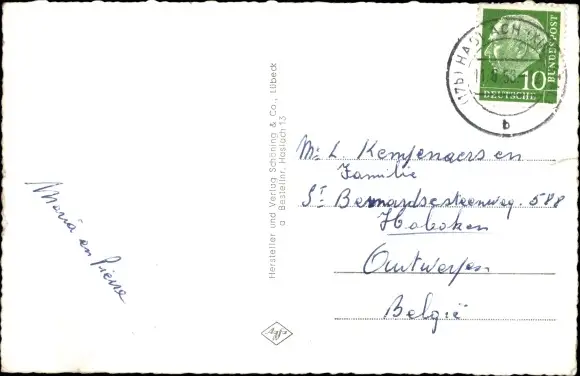 (17b) HASLACH
b
10
BUNDESPOST
DEUTSCHE
Mr L. Kempenaers en
Familie
St Bernardsesteenweg. 588
Hoboken
Antwerpen
België
Maria en Pierre
Hersteller und Verlag Schöning & Co., Lübeck
a Bestellnr. Haslach 13